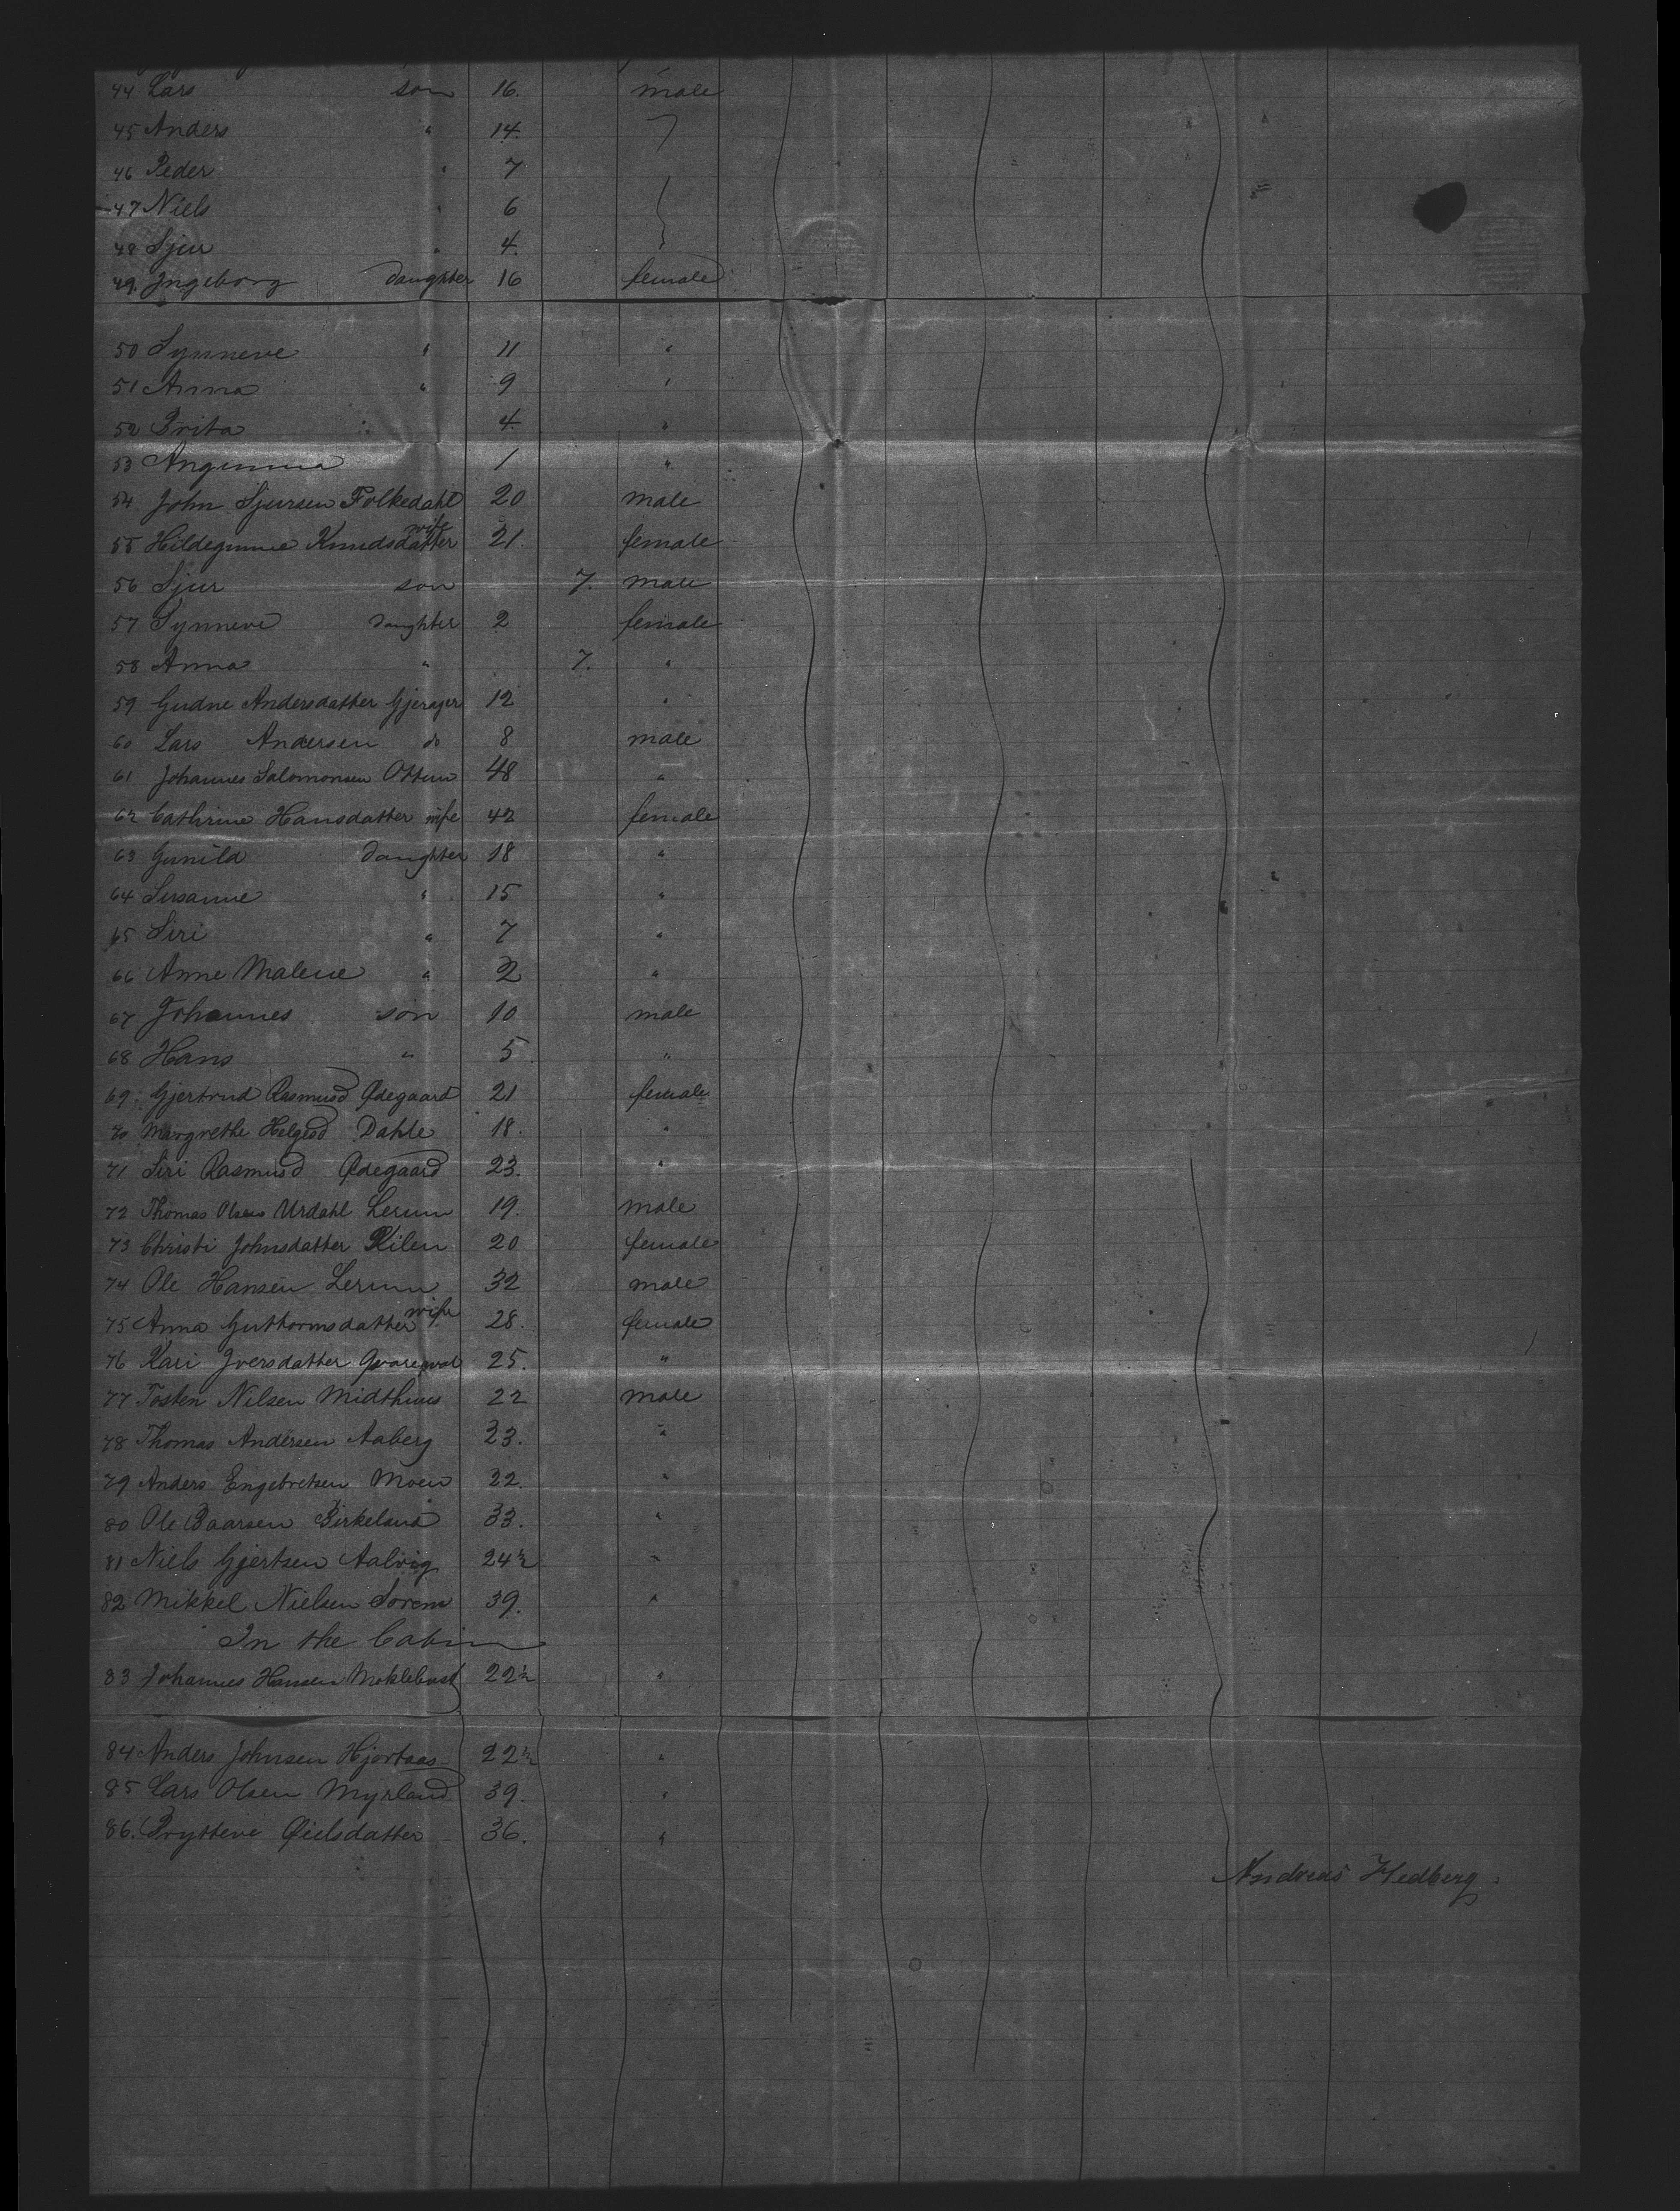 44 Lars son 16. male
45 Anders " 14.
46 Peder " 7
47 Niels " 6
48 Sjur " 4.
49. Ingeborg daughter 16 female
50 Synneve " 11 "
51 Anna " 9 "
52 Brita 4. "
53 1 "
54 John Sjursen Folkedahl 20 male
55 Hildegunne Knudsdatter wife 21. female
56 Sjur son 7. male
57 Synneve daughter 2 female
58 Anna " 7. "
59 Gudne Andersdatter Gjerager 12 "
60 Lars Andersen do 8 male
61 Johannes Salomonsen Ottum 48 "
62 Cathrine Hansdatter wife 42 female
63 Gunild daughter 18 "
64 Susanne " 15 "
65 Siri " 7 "
66 Anne Malene " 2 "
67 Johannes son 10 male
68 Hans " 5. "
69. Gjertrud Rasmusd Ødegaard 21 female
70 Margrethe Helgesd Dahle 18. "
71 Siri Rasmusd Ødegaard 23. "
72 Thomas Olsen Urdahl Lerum 19. male
73 Christi Johnsdatter 20 female
74 Ole Hansen Lerum 32 male
75 Anna Guttormsdatter wife 28. female
76 Kari Iversdatter 25. "
77 Tosten Nilsen Midthuus 22 male
78 Thomas Andersen Aaberg 23. "
79 Anders Engebretsen Moen 22. "
80 Ole Baarsen Birkeland 33. "
81 Niels Gjertsen Aalvig 24½ "
82 Mikkel Nielsen Sorem 39. "
In the Cabin
83 Johannes Hansen Meklebust 22½ "
84 Anders Johnsen Hjortaas 22½ "
85 Lars Olsen Myrland 39. "
86. 36. "
Andreas Hedberg.